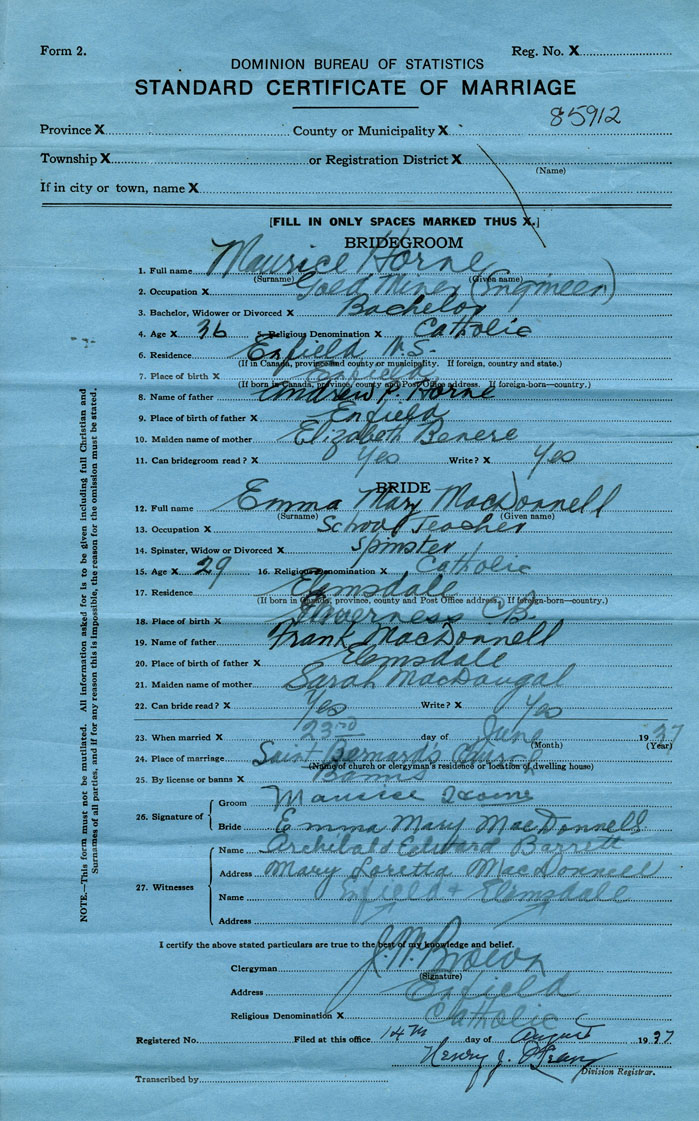 Form 2. Reg. No. X
DOMINION BUREAU OF STATISTICS
STANDARD CERTIFICATE OF MARRIAGE
85912
Province X County or Municipality X
Township X or Registration District X
(Name)
If in city or town, name X
[FILL IN ONLY SPACES MARKED THUS X.]
BRIDEGROOM
1. Full name Maurice Horne
(Surname) (Given name)
2. Occupation X Gold Miner (Engineer)
3. Bachelor, Widower or Divorced X Bachelor
4. Age X 36 5. Religious Denomination X Catholic
6. Residence Enfield N.S.
(If in Canada, province and county or municipality. If foreign, country and state.)
7. Place of birth X Enfield
(If born in Canada, province, county and Post Office address. If foreign-born—country.)
8. Name of father Andrew P. Horne
9. Place of birth of father X Enfield
10. Maiden name of mother Elizabeth Benere
11. Can bridegroom read? X Yes Write? X Yes
BRIDE
12. Full name Emma Mary MacDonnell
(Surname) (Given name)
13. Occupation X School Teacher
14. Spinster, Widow or Divorced X Spinster
15. Age X 29 16. Religious Denomination X Catholic
17. Residence Elmsdale
(If born in Canada, province, county and Post Office address. If foreign-born—country.)
18. Place of birth X Inverness C.B.
19. Name of father Frank MacDonnell
20. Place of birth of father X Elmsdale
21. Maiden name of mother Sarah MacDougal
22. Can bride read? X Yes Write? X Yes
23. When married X 23rd day of June 1937
(Month) (Year)
24. Place of marriage Saint Bernard's Church
(Name of church or clergyman's residence or location of dwelling house)
25. By license or banns X Banns
26. Signature of
Groom Maurice Horne
Bride Emma Mary MacDonnell
27. Witnesses
Name Archibald Edward Barrett
Address Mary Loretta MacDonnell
Name Enfield & Elmsdale
Address
I certify the above stated particulars are true to the best of my knowledge and belief.
Clergyman J. W. Brown
(Signature)
Address Enfield
Religious Denomination X Catholic
Registered No. Filed at this office 14th day of August 1937
Henry J.
Division Registrar.
Transcribed by
NOTE.—This form must not be mutilated. All information asked for is to be given including full Christian and
Surnames of all parties, and if for any reason this is impossible, the reason for the omission must be stated.